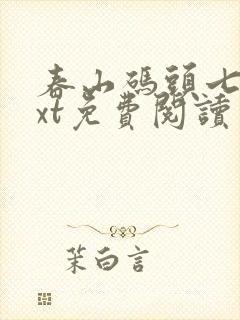 春山碼頭七
xt免費閱讀
茉白言